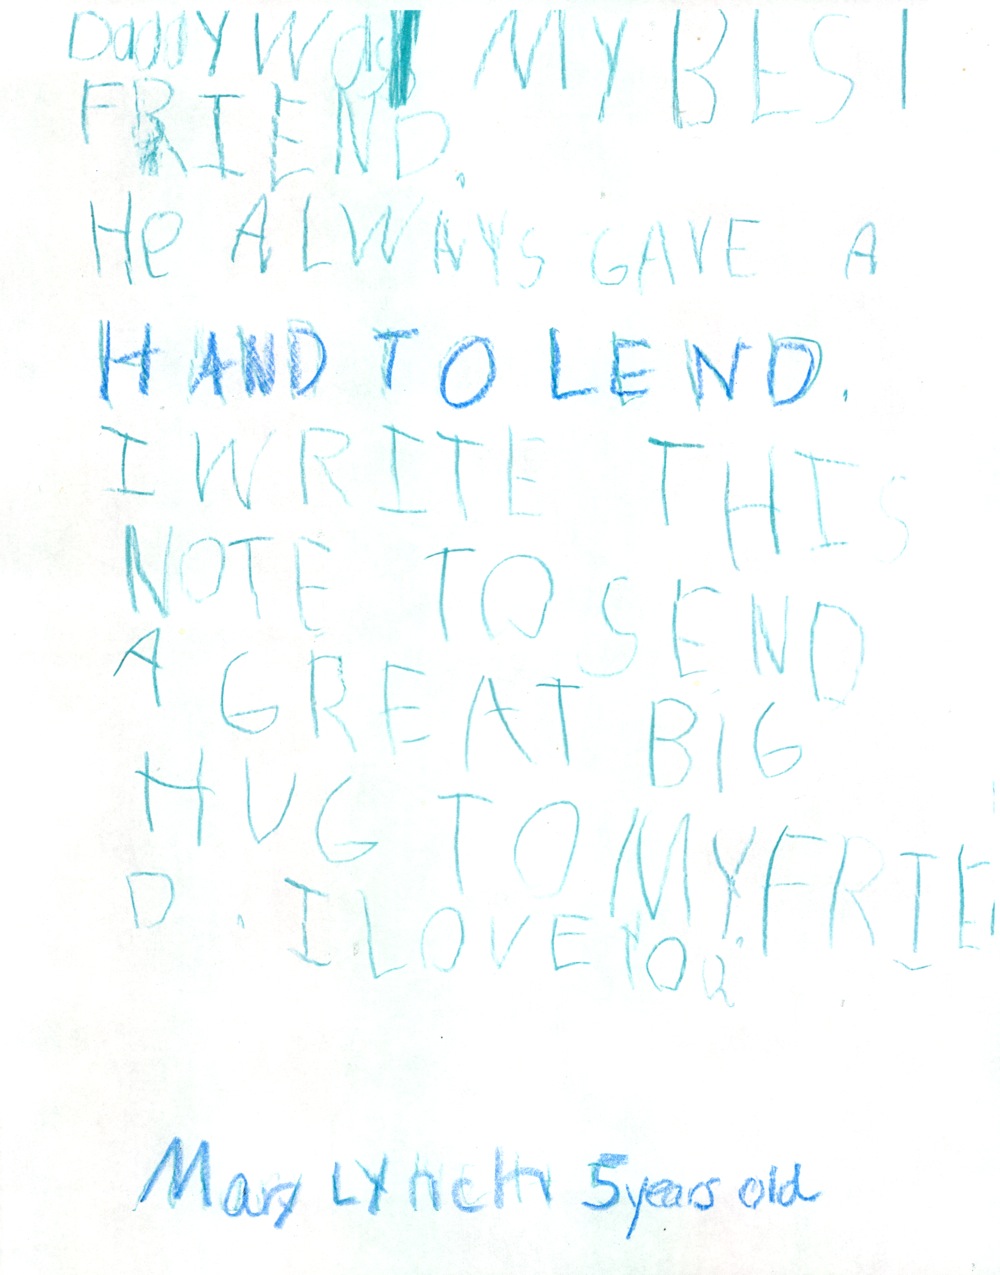 Daddy Was MY BEST
FRIEND.
He ALWAYS GAVE A
HAND TO LEND.
I WRITE THIS
NOTE TO SEND
A GREAT BIG
HUG TO MY FRIEN
D. I LOVE YOU
Mary LYNCH 5 years old